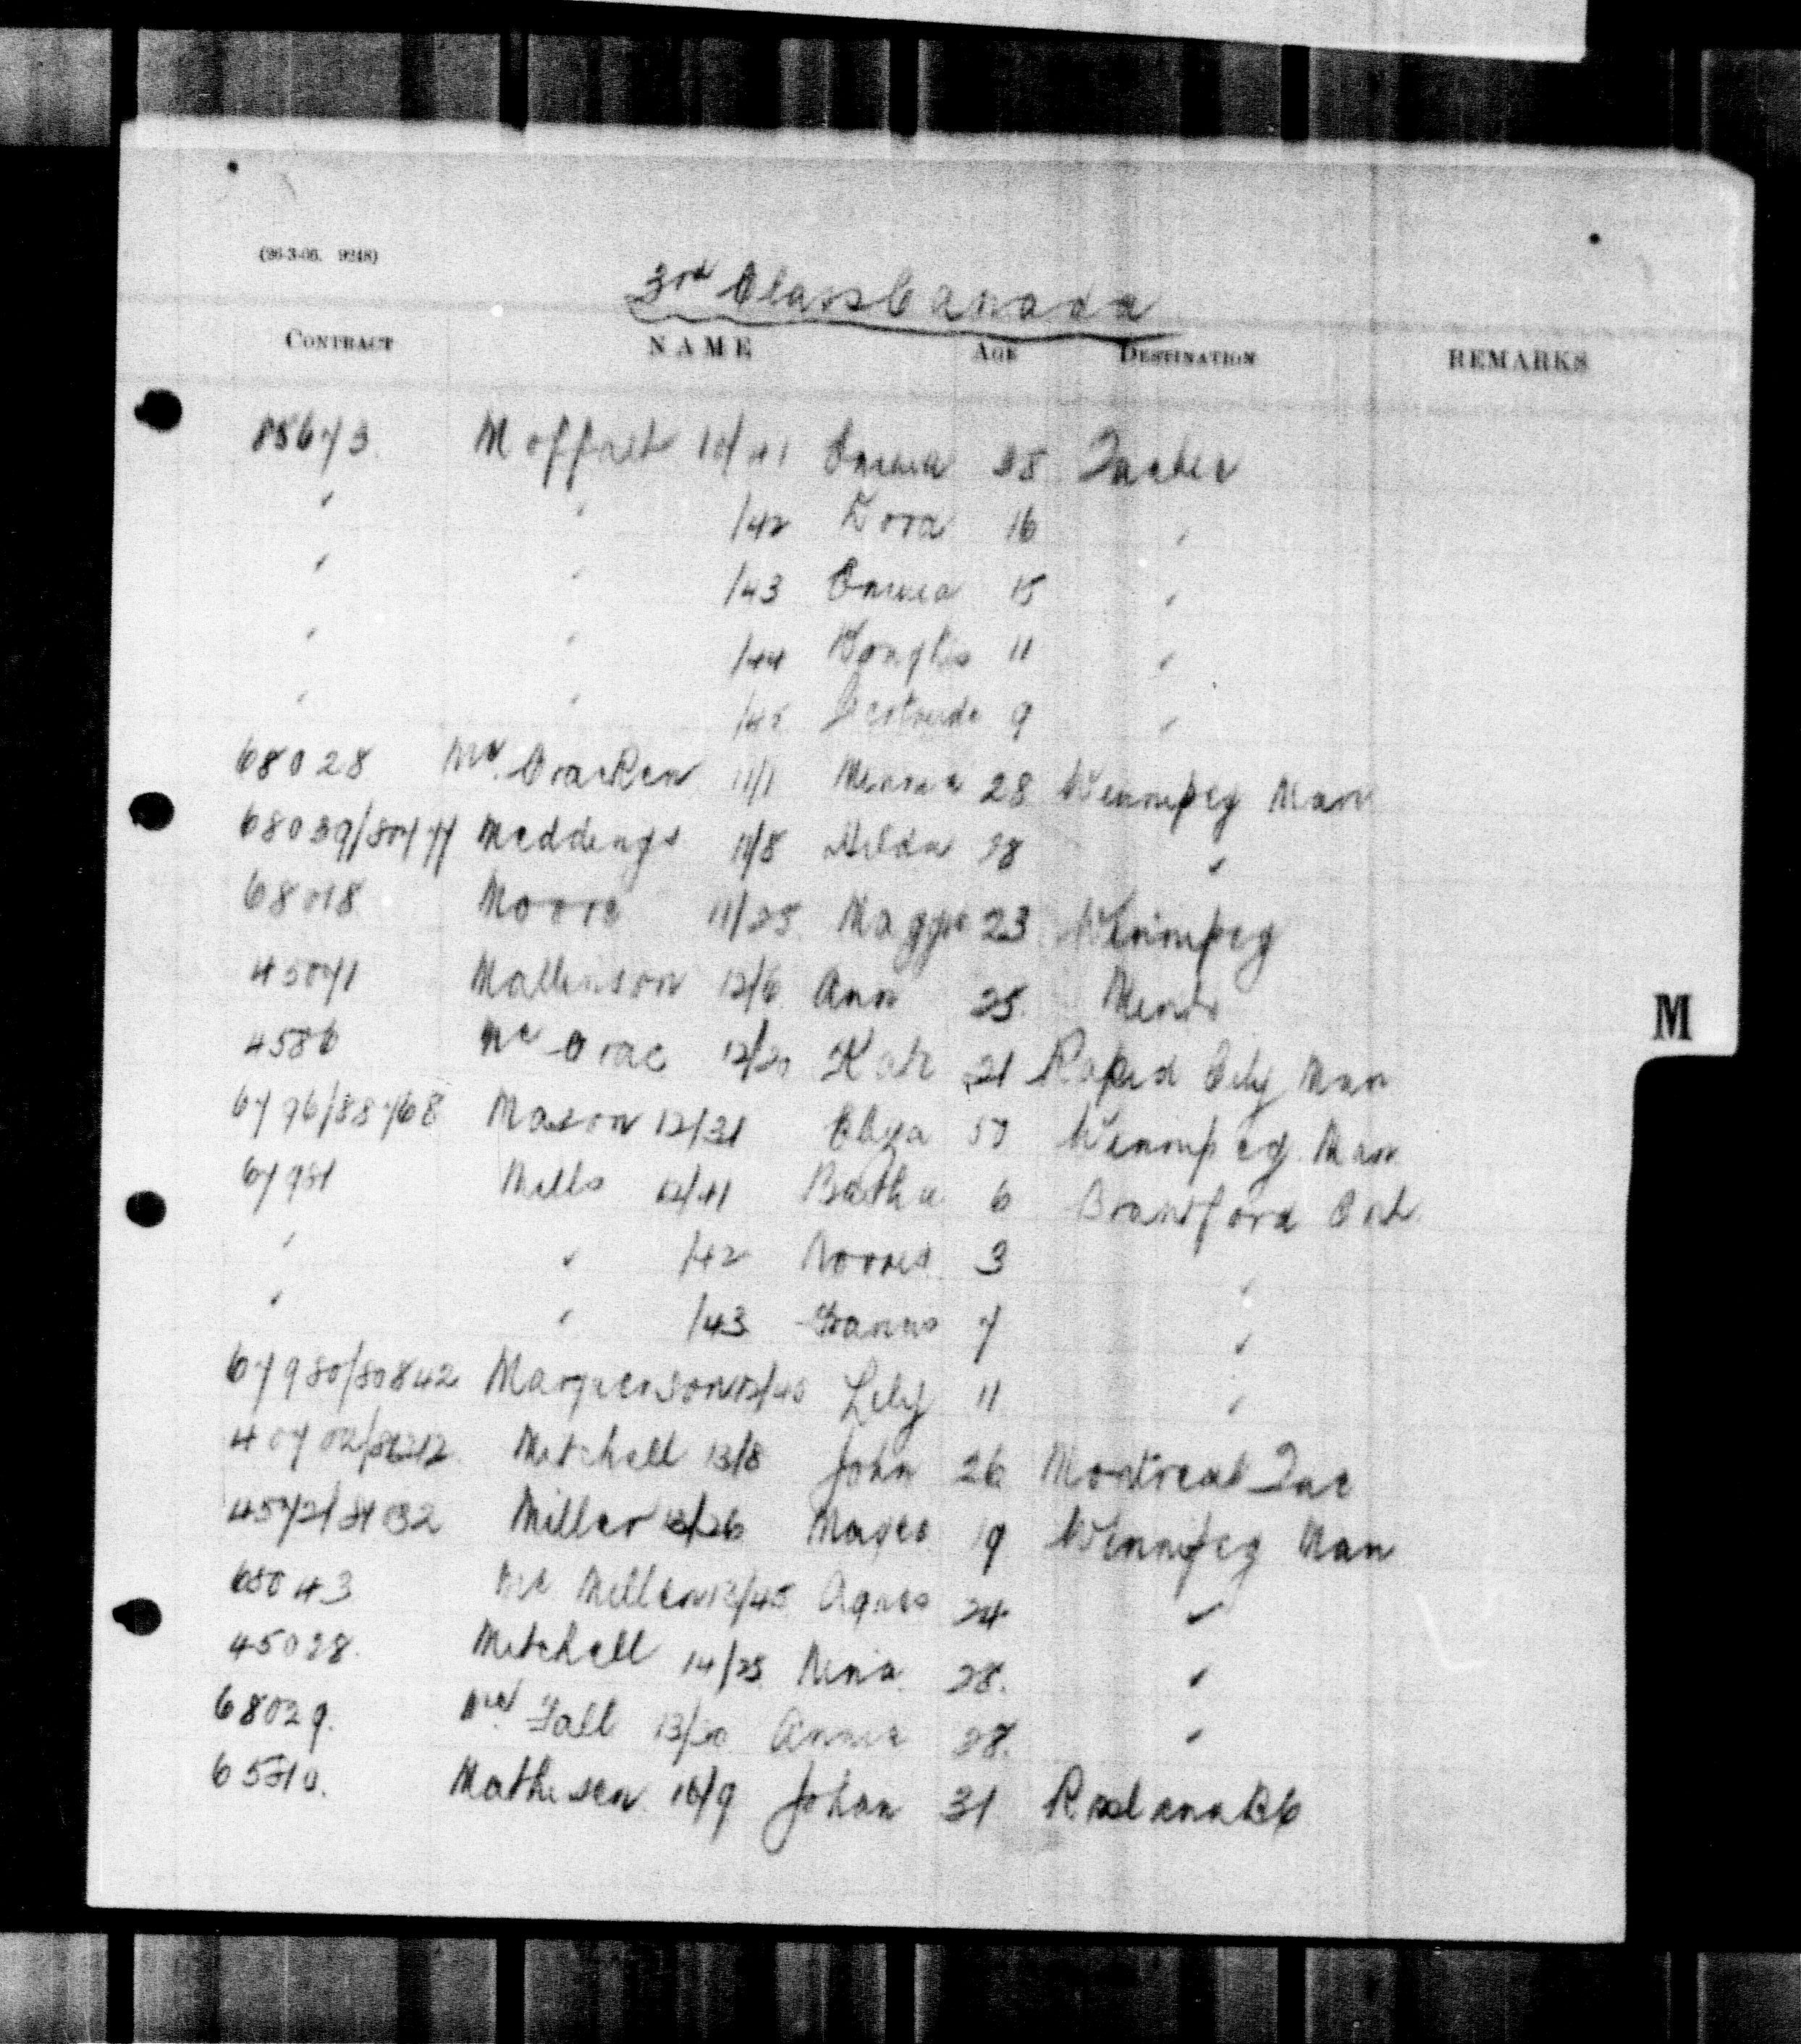 (26-3-06. 9248)
3rd Class Canada
CONTRACT NAME AGE DESTINATION REMARKS
88673 Moffatt 10/41 Emma 38 Quebec
" " /42 Dora 16 "
" " /43 Emma 15 "
" " /44 Douglas 11 "
" " /45 Gertrude 9 "
68028 McCracken 11/1 Minnie 28 Winnipeg Man
68039/80777 Meddings 11/8 Hilda 28 "
68018 Moore 11/25 Maggie 23 Winnipeg
45071 Mallinson 12/6 Ann 25
4586 McCrae 12/20 Kate 21 Rapid City Man
6796/88768 Mason 12/31 Eliza 57 Winnipeg Man
67981 Mills 12/41 Bertha 6 Brantford Ont.
" " /42 Norris 3 "
" " /43 Francis 7 "
67980/80842 12/45 Lily 11 "
Mitchell 13/8 John 26 Montreal Que
Miller 13/26 19 Winnipeg Man
68043 McMillen 13/45 Agnes 24 "
45028. Mitchell 14/25 Nina 28. "
68029. McFall 13/20 Annie 28. "
Mathesen 16/9 Johan 31
M